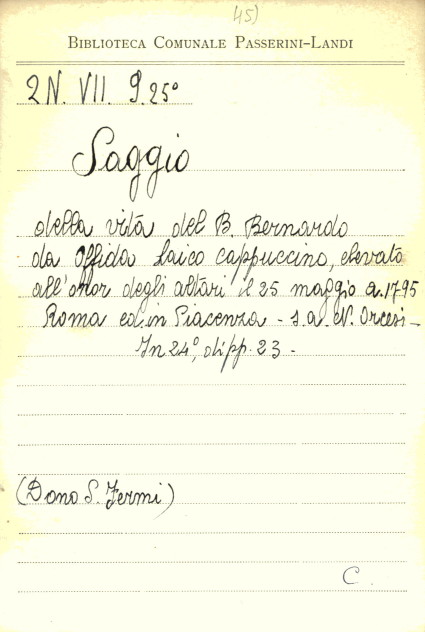 45)
BIBLIOTECA COMUNALE PASSERINI-LANDI
2N. VII. 9.25°
Saggio
della vita del B. Bernardo
da Offida Laico cappuccino, elevato
all'onor degli altari il 25 maggio a. 1795
Roma ed in Piacenza - s.a. N. Orcesi -
In 24°, di pp. 23 -
(Dono S. Fermi)
C.